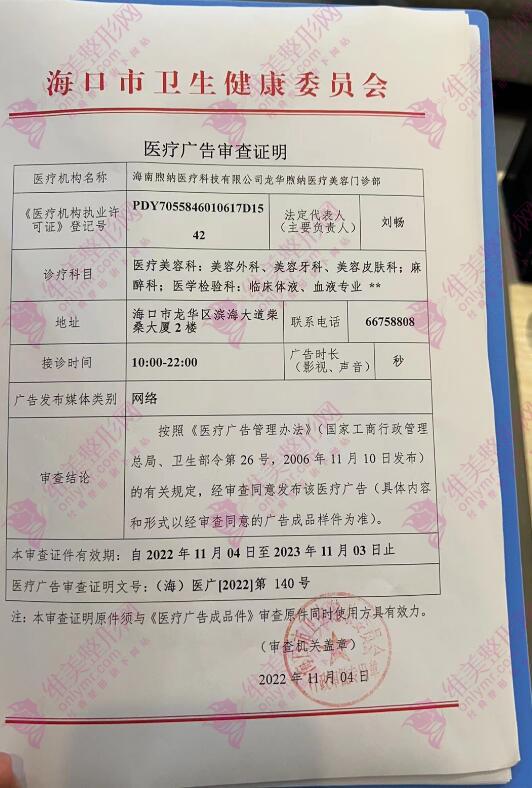 海口市卫生健康委员会
医疗广告审查证明
医疗机构名称 海南煦纳医疗科技有限公司龙华煦纳医疗美容门诊部
《医疗机构执业许
可证》登记号
PDY7055846010617D15
42
法定代表人
(主要负责人)
刘畅
诊疗科目
医疗美容科：美容外科、美容牙科、美容皮肤科；麻
醉科；医学检验科：临床体液、血液专业 **
地址
海口市龙华区滨海大道柴
桑大厦2楼
联系电话
66758808
接诊时间
10:00-22:00
广告时长
(影视、声音)
秒
广告发布媒体类别 网络
审查结论
按照《医疗广告管理办法》（国家工商行政管理
总局、卫生部令第26号，2006年11月10日发布）
的有关规定，经审查同意发布该医疗广告（具体内容
和形式以经审查同意的广告成品样件为准）。
本审查证件有效期：自2022年11月04日至2023年11月03日止
医疗广告审查证明文号：（海）医广[2022]第 140号
注：本审查证明原件须与《医疗广告成品件》审查原件同时使用方具有效力。
（审查机关盖章）
2022年11月04日
维美整形网
onlymr.com